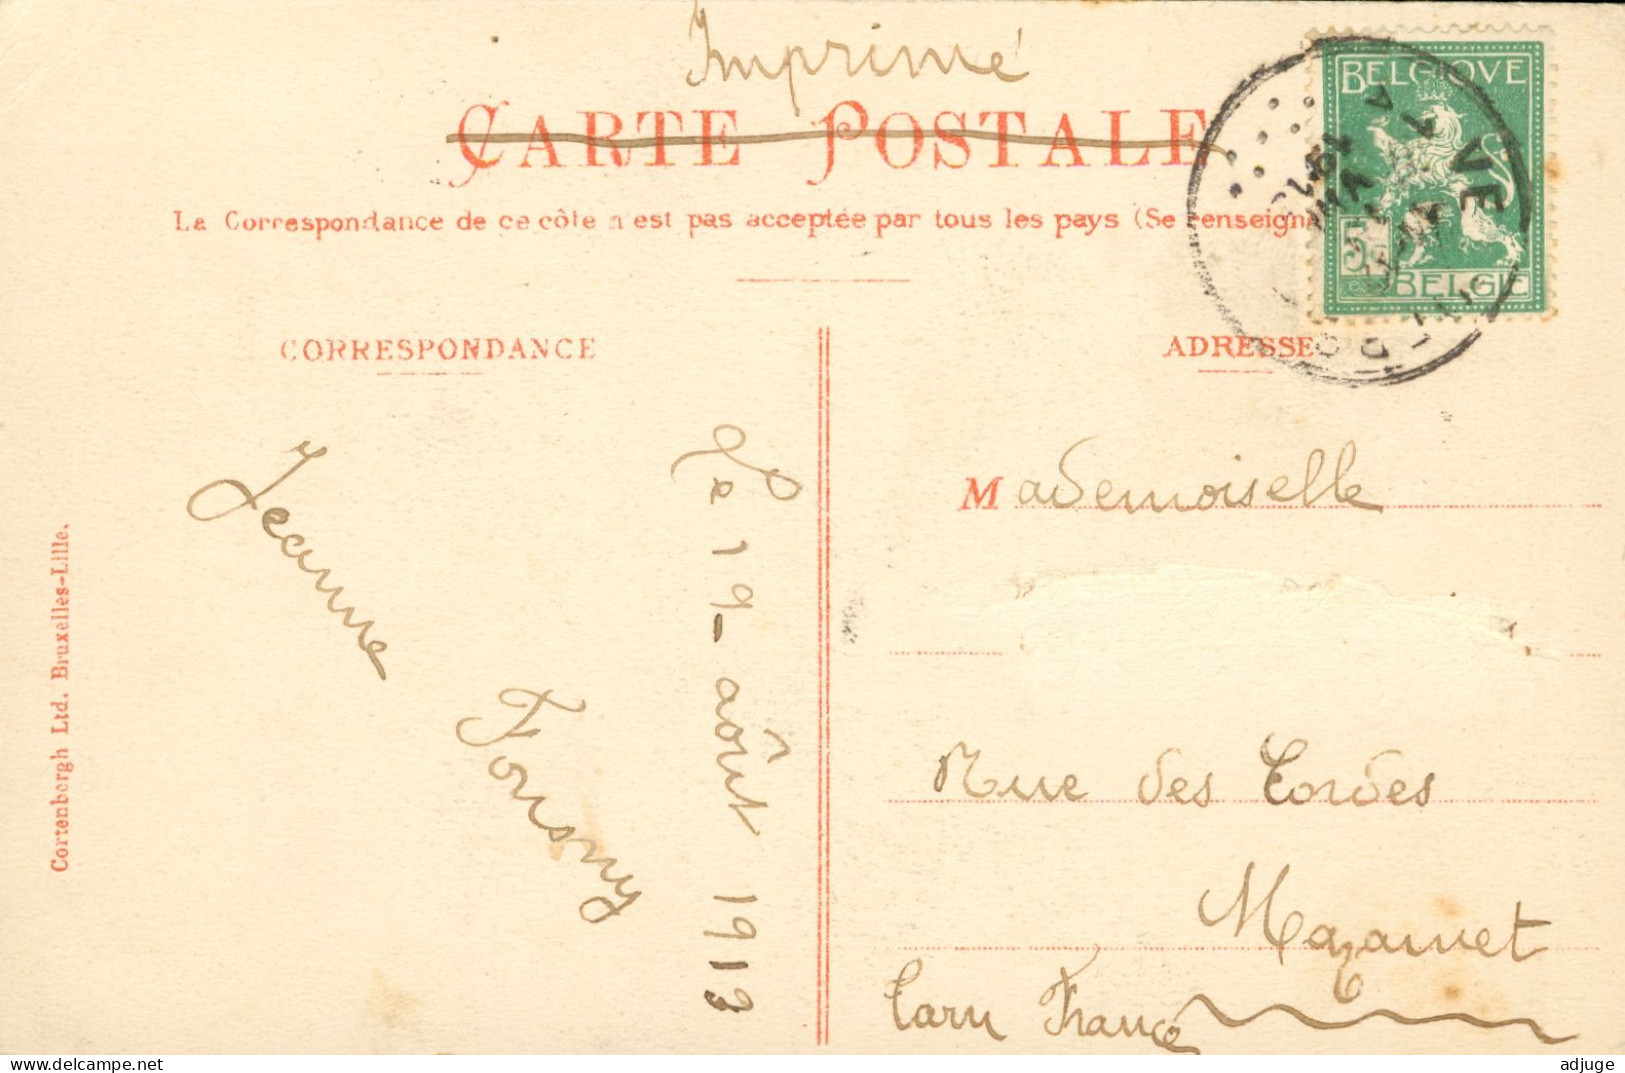 Imprimé
CARTE POSTALE
La Correspondance de ce côté n'est pas acceptée par tous les pays (Se renseign
BELGIQVE
5c
BELGIE
CORRESPONDANCE
ADRESSE
Jeanne
Le 19 août 1913
Cortenbergh Ltd. Bruxelles-Lille.
Mademoiselle
Rue des Cordes
Mazamet
Tarn France
delcampe.net
adjuge